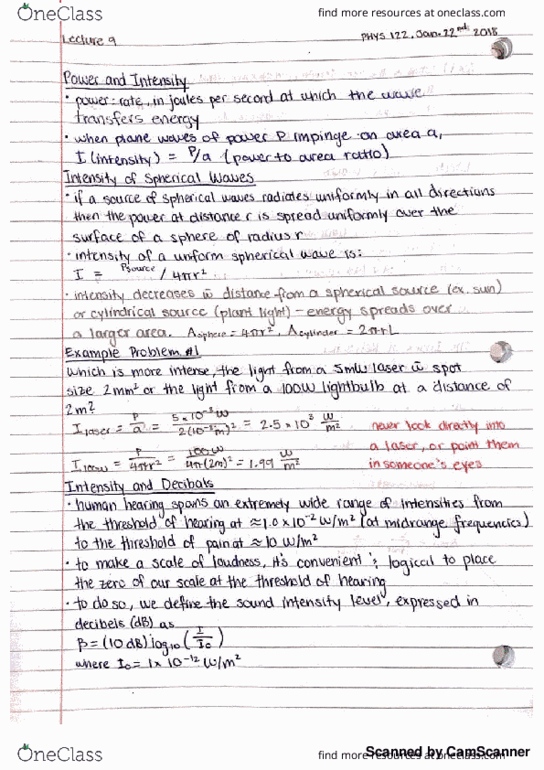 OneClass
find more resources at oneclass.com
Lecture 9
PHYS 122, Jan. 22nd 2018
Power and Intensity
• power: rate, in joules per second at which the wave
transfers energy
• when plane waves of power P impinge on area a,
I (intensity) = P/a (power to area ratio)
Intensity of Spherical Waves
• if a source of spherical waves radiates uniformly in all directions
then the power at distance r is spread uniformly over the
surface of a sphere of radius r
• intensity of a uniform spherical wave is:
I = Psource / 4πr²
• intensity decreases w̄ distance from a spherical source (ex. sun)
or cylindrical source (plant light) - energy spreads over
a larger area. Asphere = 4πr², Acylinder = 2πrL
Example Problem #1
which is more intense, the light from a 5mW laser w̄ spot
size 2mm² or the light from a 100W lightbulb at a distance of
2m?
I laser = P/a = 5×10⁻³W / 2(10⁻³m)² = 2.5×10³ W/m²
never look directly into
a laser, or point them
I 100W = P/4πr² = 100W / 4π(2m)² = 1.99 W/m²
in someone's eyes
Intensity and Decibals
• human hearing spans an extremely wide range of intensities from
the threshold of hearing at ≈1.0×10⁻² W/m² (at midrange frequencies)
to the threshold of pain at ≈10 W/m²
• to make a scale of loudness, it's convenient & logical to place
the zero of our scale at the threshold of hearing
• to do so, we define the sound intensity level, expressed in
decibels (dB) as
β = (10 dB) log₁₀ (I/I₀)
where I₀ = 1×10⁻¹² W/m²
Scanned by CamScanner
OneClass
find more resources at oneclass.com